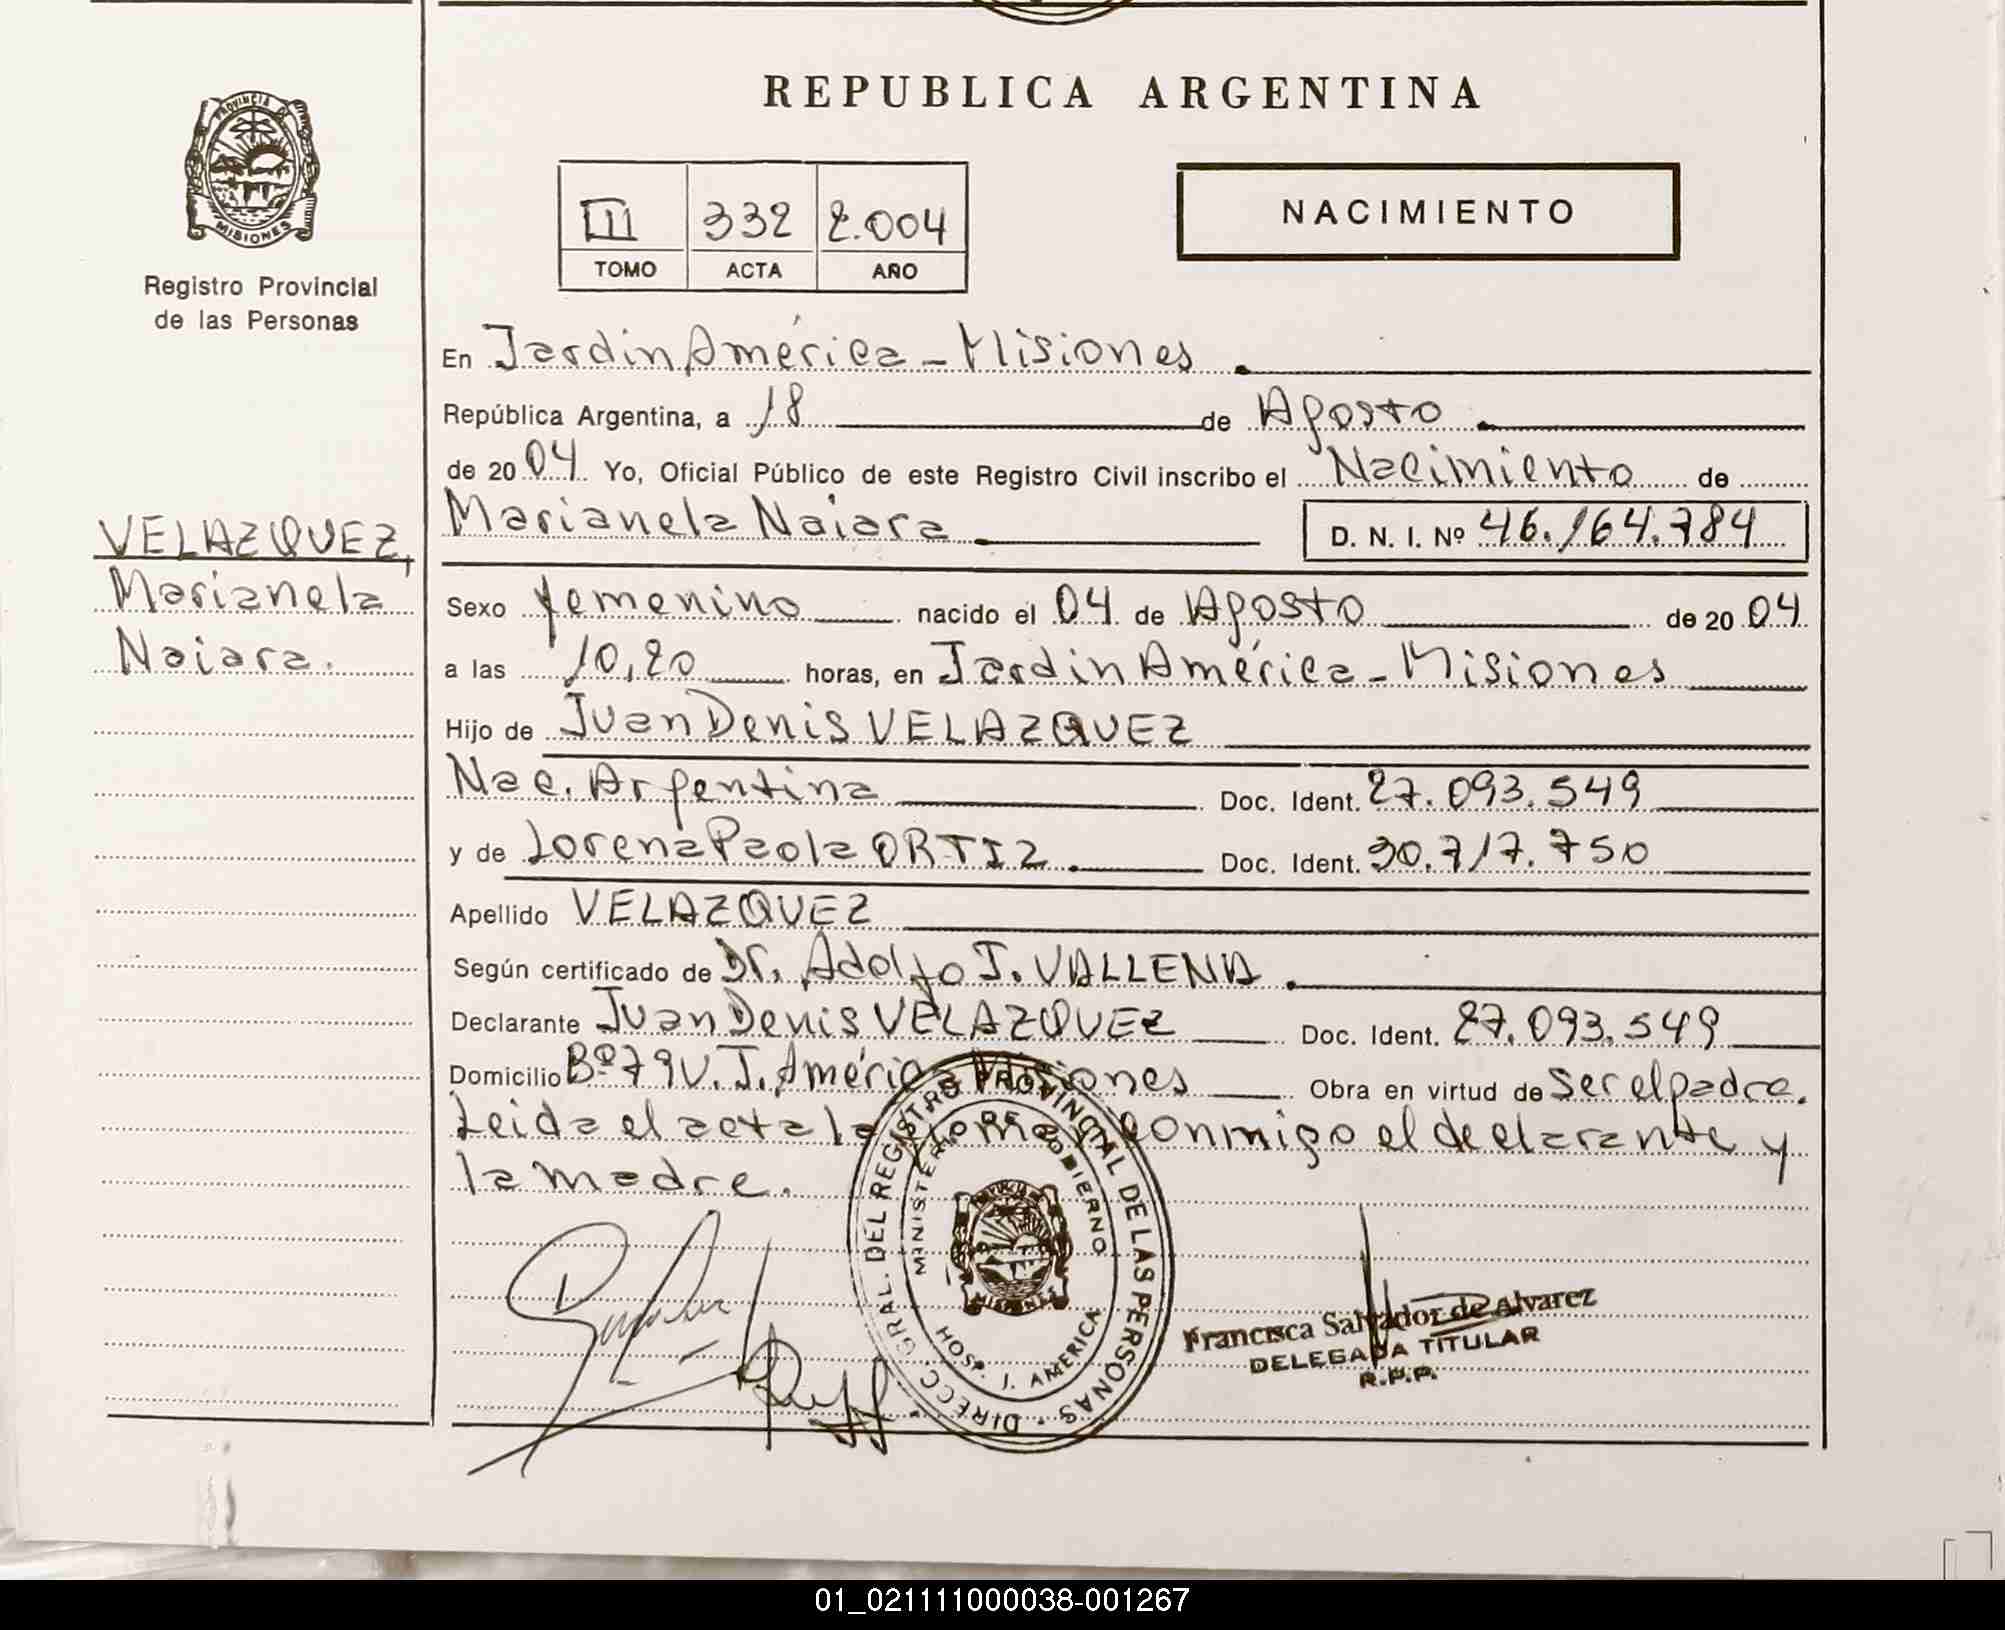 REPUBLICA ARGENTINA
PROVINCIA DE
MISIONES
Registro Provincial
de las Personas
III 332 2.004
TOMO ACTA AÑO
NACIMIENTO
En Jardín América - Misiones.
República Argentina, a 18 de Agosto.
de 2004 Yo, Oficial Público de este Registro Civil inscribo el Nacimiento de
Marianela Naiara. D. N. I. Nº 46.164.784
VELAZQUEZ,
Marianela
Naiara.
Sexo femenino nacido el 04 de Agosto de 2004
a las 10,20 horas, en Jardin América - Misiones
Hijo de Juan Denis VELAZQUEZ
Nac. Argentina Doc. Ident. 27.093.549
y de Lorena Paola ORTIZ. Doc. Ident. 30.717.750
Apellido VELAZQUEZ
Según certificado de Dr. Adolfo J. VALLENA.
Declarante Juan Denis VELAZQUEZ Doc. Ident. 27.093.549
Domicilio Bº 79 V. J. América Misiones Obra en virtud de ser el padre.
Leida el acta la firman conmigo el declarante y
la madre.
DIRECC. GRAL. DEL REGISTRO PROVINCIAL DE LAS PERSONAS
MINISTERIO DE GOBIERNO
MISIONES
HOSP. J. AMERICA
Francisca Salvador de Alvarez
DELEGADA TITULAR
R.P.P.
01_021111000038-001267